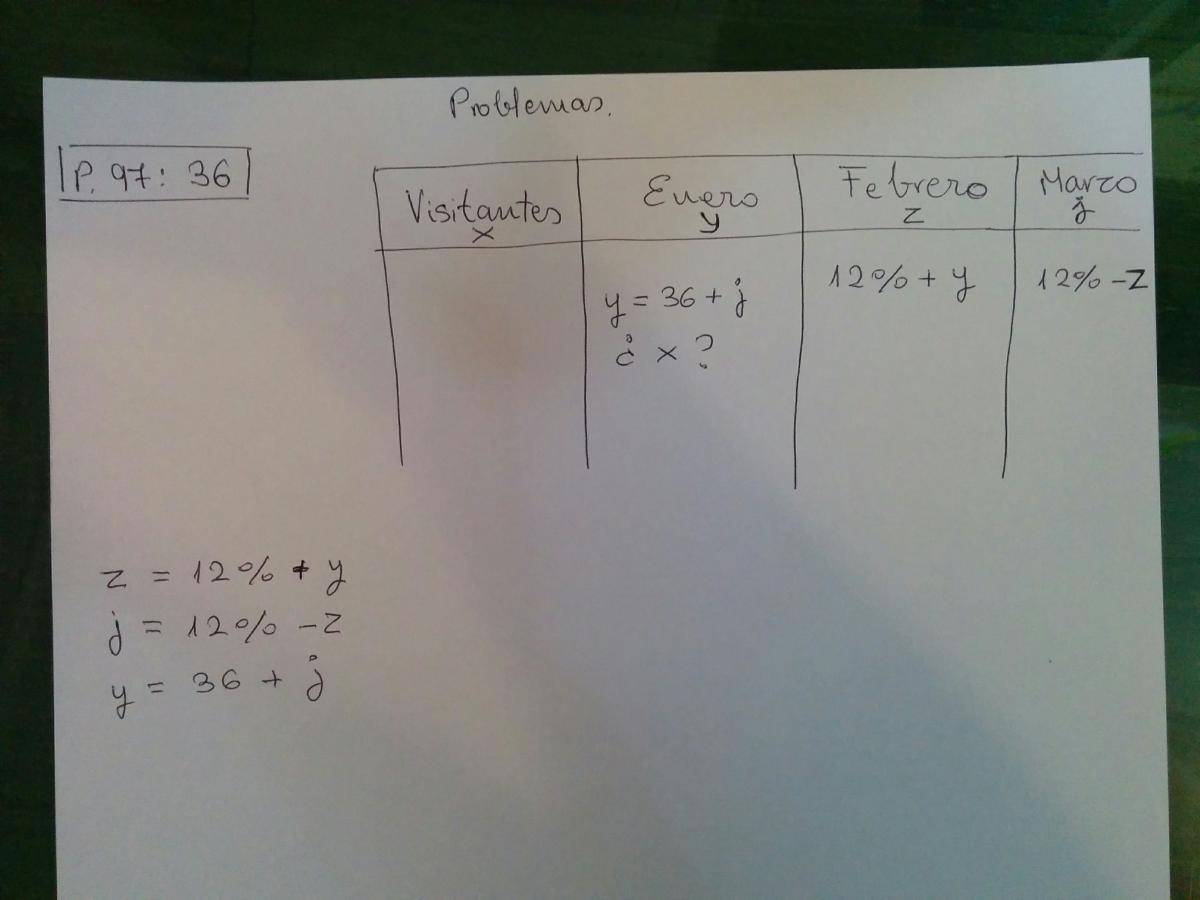 Problemas.
P. 97: 36
Visitantes Enero Febrero Marzo
x y z j
12% + y 12% - z
y = 36 + j
¿ x ?
z = 12% + y
j = 12% - z
y = 36 + j